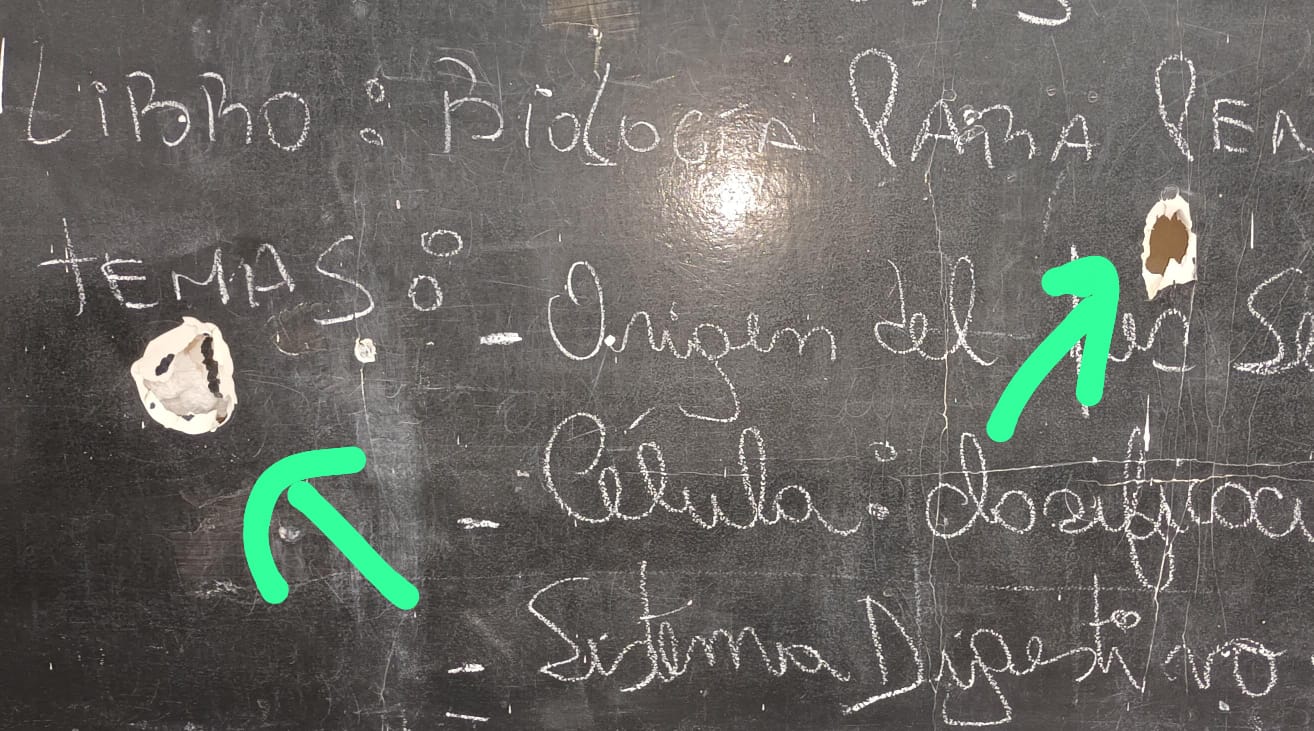 LiBRO: Biología PARA PEN
tEMAS:
- Origen del
- Célula: clasificaci
- Sistema Digestivo